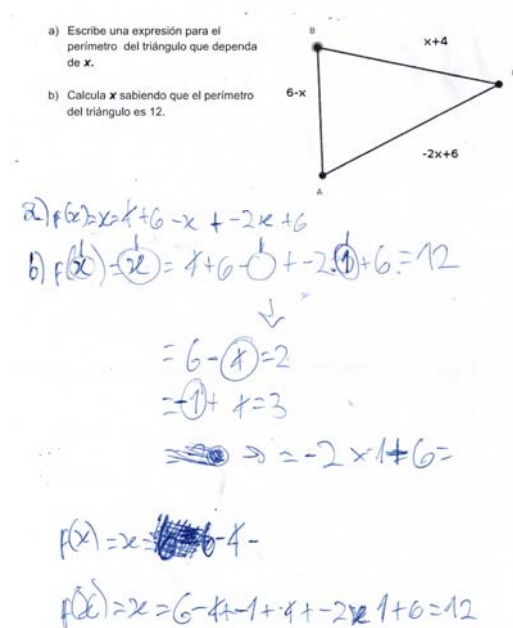 a) Escribe una expresión para el
perímetro del triángulo que dependa
de x.
b) Calcula x sabiendo que el perímetro
del triángulo es 12.
B
x+4
6-x
-2x+6
A
a) f(x)=x=4+6-x+-2x+6
b) f(x)=x=4+6-+-2.1+6=12
=6-4=2
=-1+4=3
=-2x1+6=
f(x)=x=6-4-
f(x)=x=6-4+-1+4+-2x1+6=12